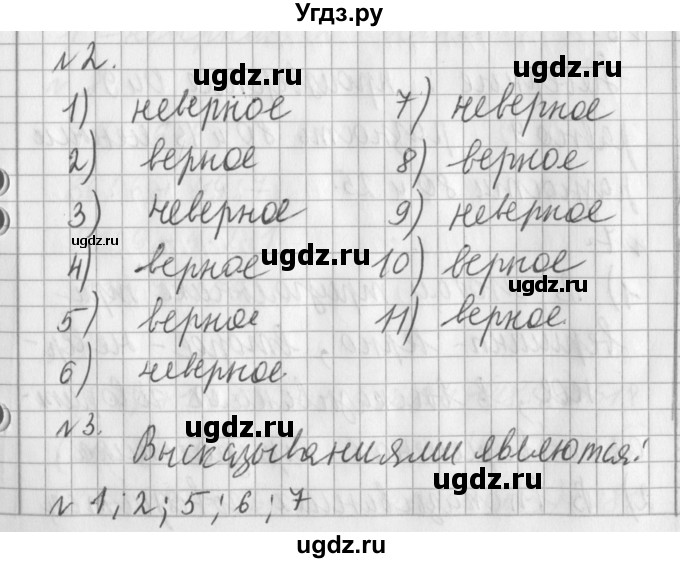 Угдз.ру
№2.
ugdz.ru ugdz.ru
1) неверное 7) неверное
2) верное 8) верное
ugdz.ru ugdz.ru
3) неверное 9) неверное
ugdz.ru
4) верное 10) верное
ugdz.ru ugdz.ru
5) верное 11) верное
6) неверное
ugdz.ru ugdz.ru
№3. Высказываниями являются:
№ 1; 2; 5; 6; 7
ugdz.ru ugdz.ru
ugdz.ru